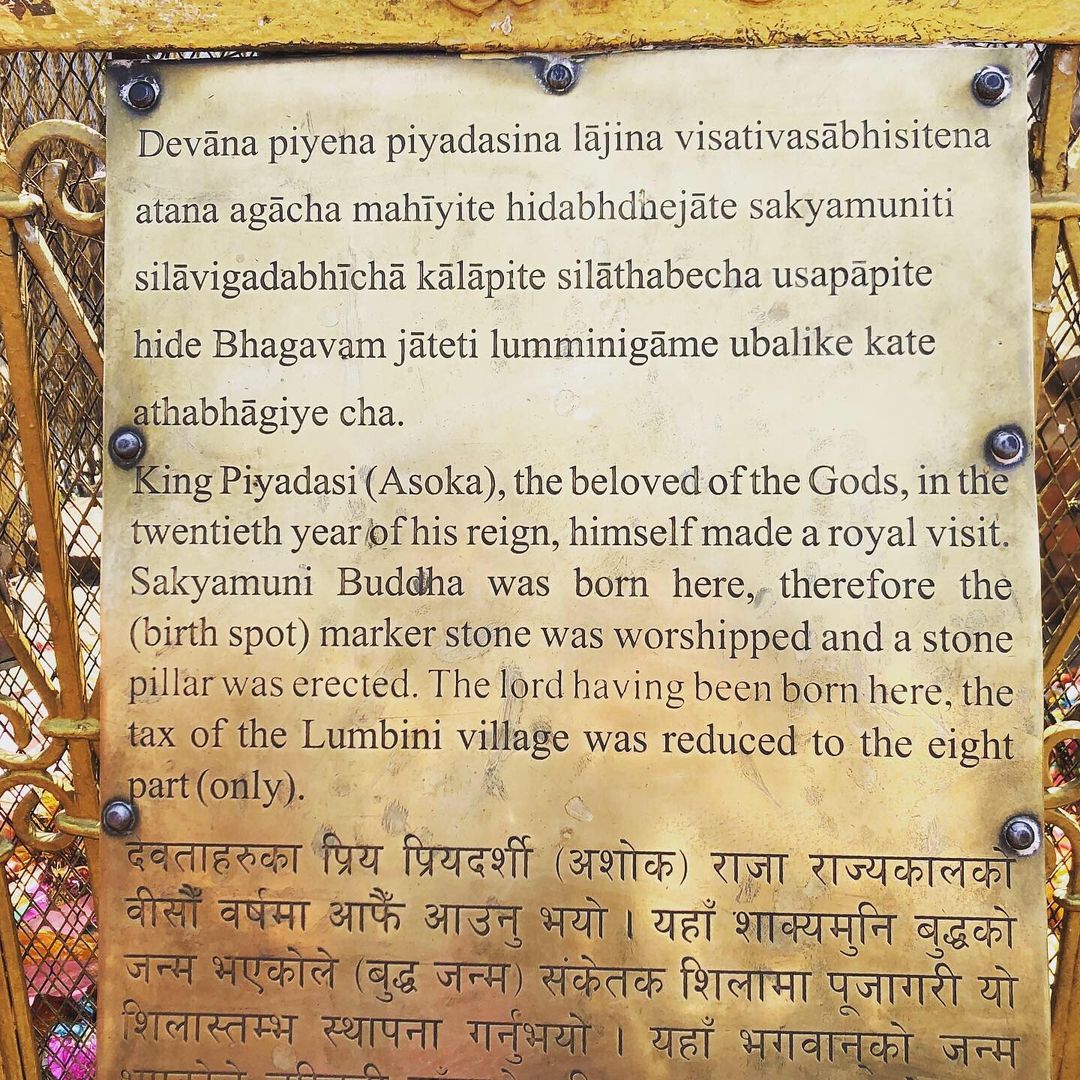 Devāna piyena piyadasina lājina visativasābhisitena
atana agācha mahīyite hidabhdhejāte sakyamuniti
silāvigadabhīchā kālāpite silāthabecha usapāpite
hide Bhagavam jāteti lumminigāme ubalike kate
athabhāgiye cha.
King Piyadasi (Asoka), the beloved of the Gods, in the
twentieth year of his reign, himself made a royal visit.
Sakyamuni Buddha was born here, therefore the
(birth spot) marker stone was worshipped and a stone
pillar was erected. The lord having been born here, the
tax of the Lumbini village was reduced to the eight
part (only).
देवताहरुका प्रिय प्रियदर्शी (अशोक) राजा राज्यकालको
वीसौँ वर्षमा आफैँ आउनु भयो । यहाँ शाक्यमुनि बुद्धको
जन्म भएकोले (बुद्ध जन्म) संकेतक शिलामा पूजागरी यो
शिलास्तम्भ स्थापना गर्नुभयो । यहाँ भगवान्को जन्म